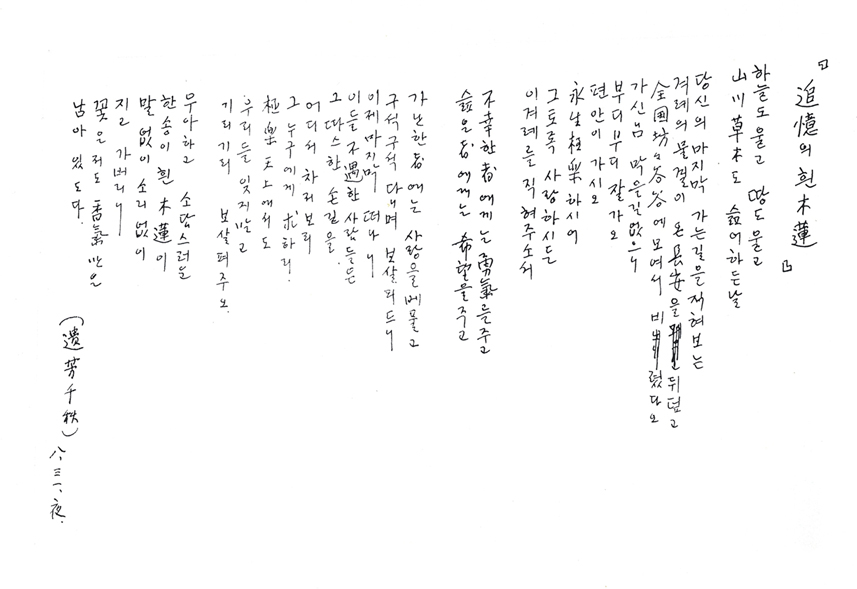 『追憶의 흰 木蓮』
하늘도 울고 땅도 울고
山川草木도 슬어하든날
당신의 마지막 가는길을 지켜보는
겨레의 물결이 온 長安을 뒤덮고
全國坊坊谷谷에 모여서 비렸다오
가신님 막을길 없으니
부디부디 잘가오
편안이 가시오
永生極樂하시어
그토록 사랑하시든
이겨레를 직혀주소서
不幸한者에게는 勇氣를주고
슬은者에게는 希望을주고
가난한者에는 사랑을베풀고
구석구석 다니며 보살피드니
이제마지막 떠나니
이들 不遇한 사람들은
그 따스한 손길을
어디서 차저보리
그 누구에게 求하리.
極樂天上에서도
우리를 잊지말고
기리기리 보살펴주오.
우아하고 소담스러운
한송이 흰 木蓮이
말없이 소리없이
지고 가버리니
꽃은져도 香氣만은
남아있도다.
(遺芳千秩) 八、三一、夜.